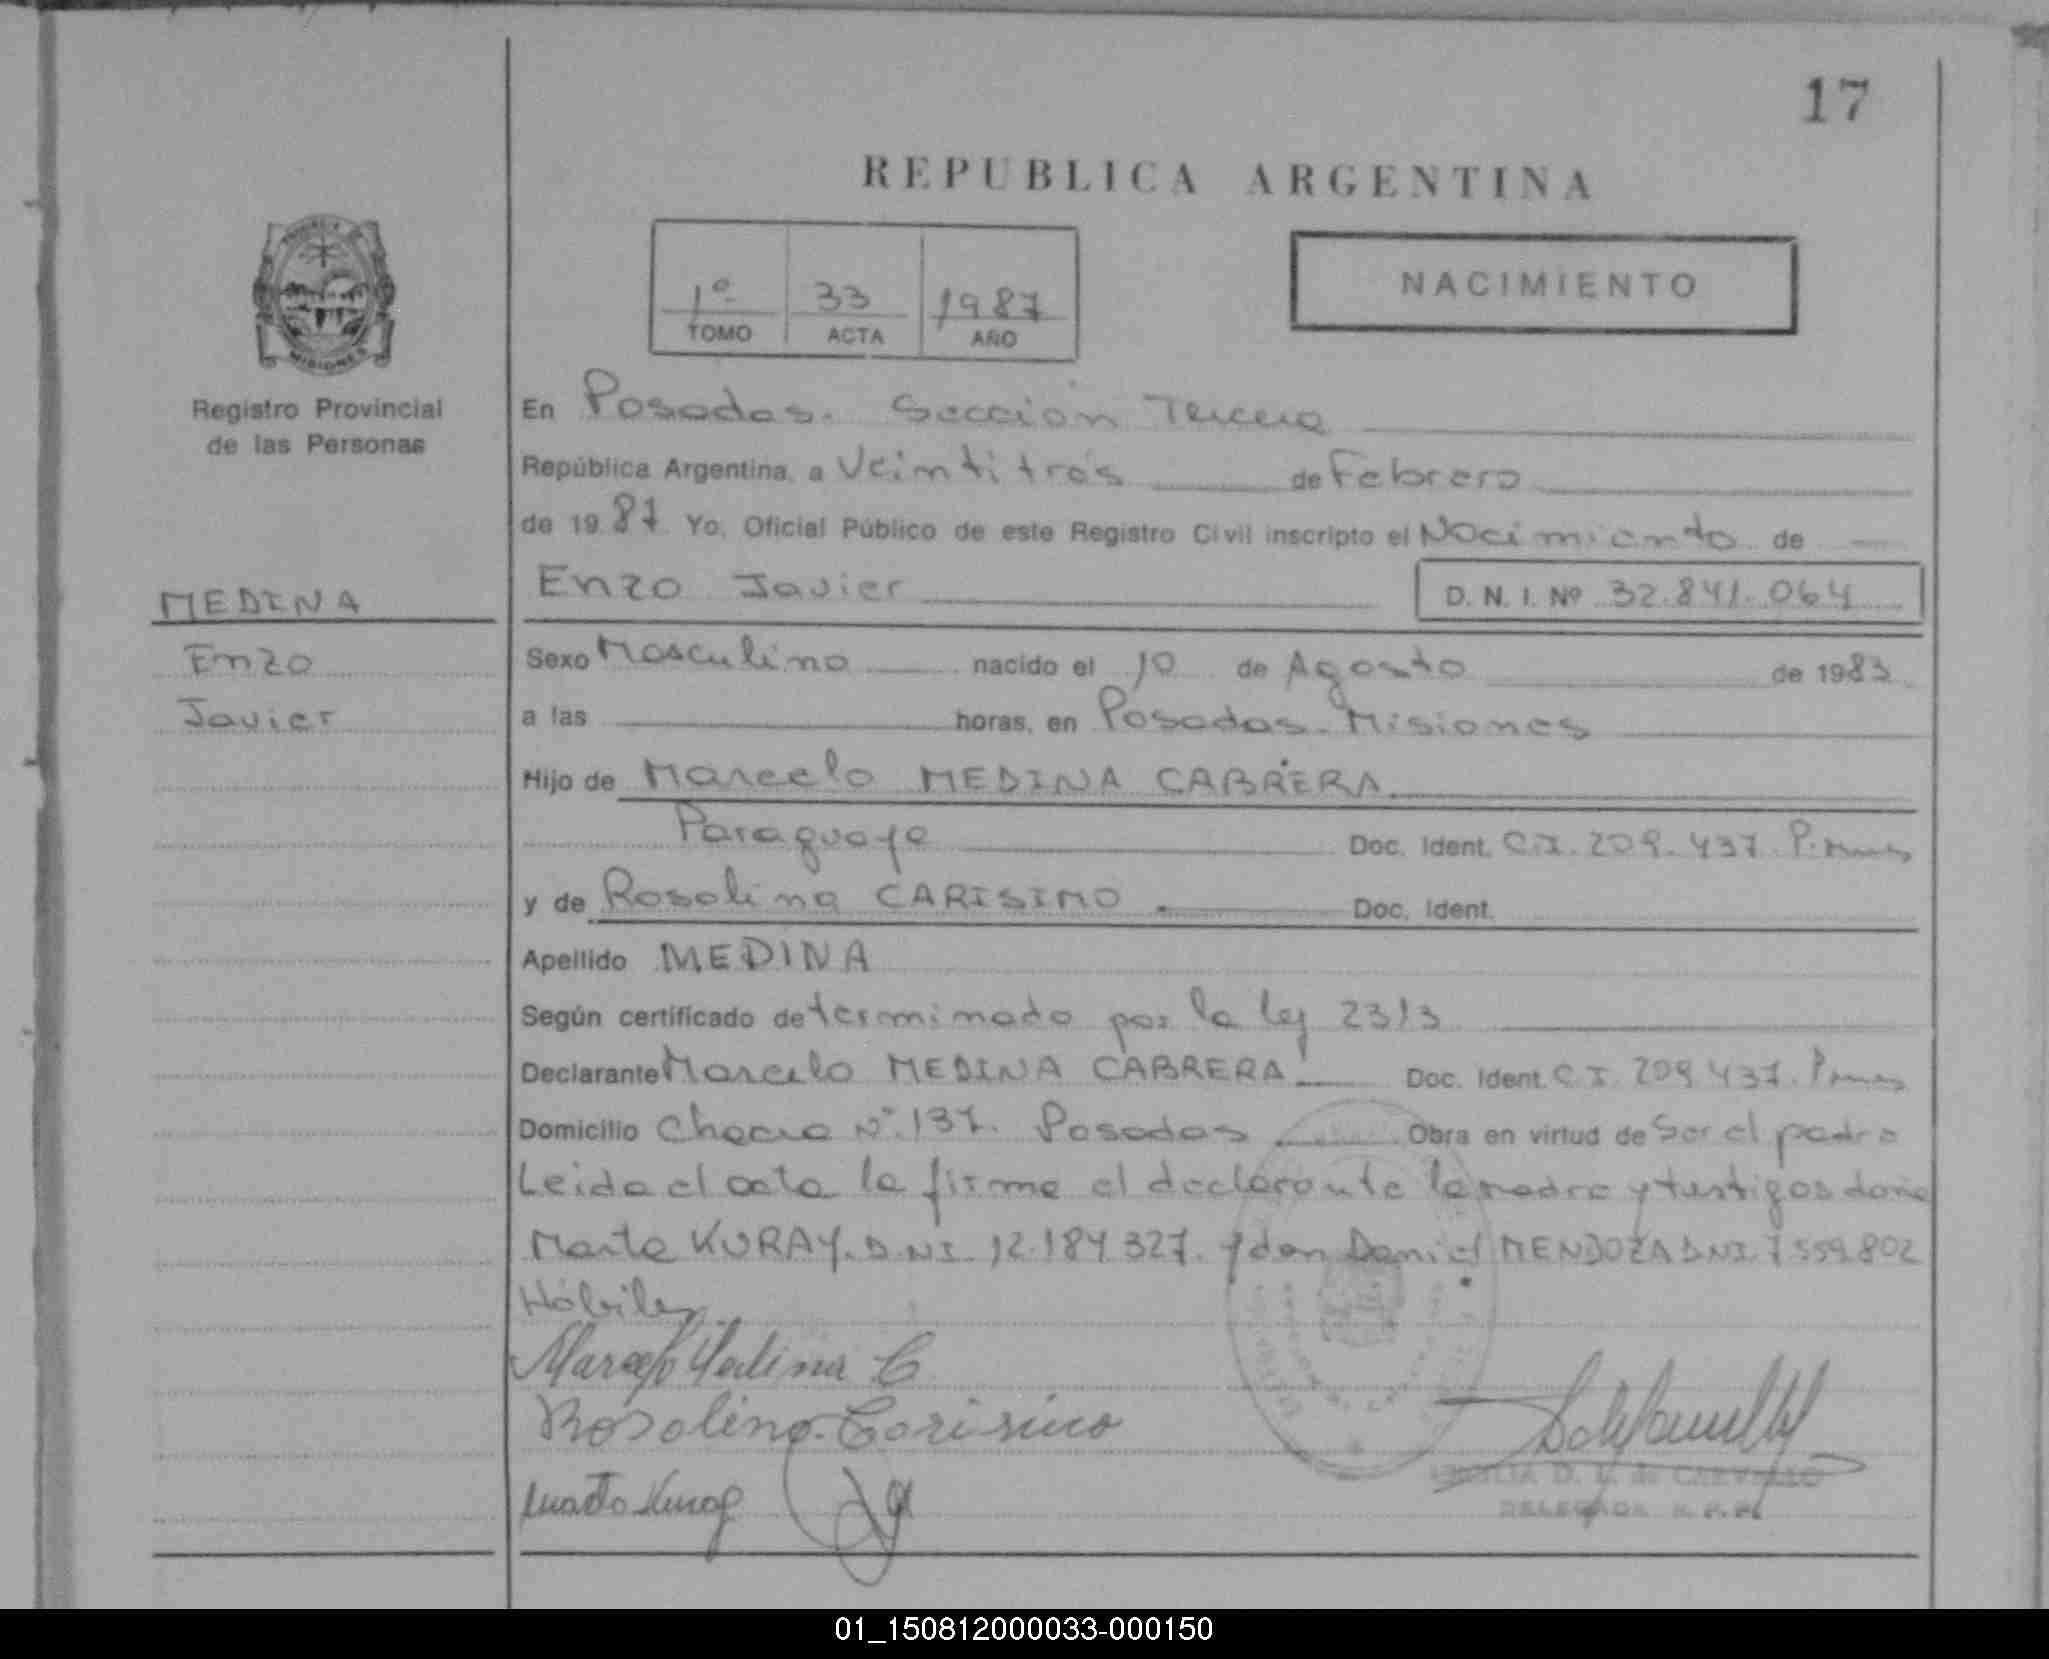 17
REPUBLICA ARGENTINA
1º 33 1987
TOMO ACTA AÑO
NACIMIENTO
MISIONES
Registro Provincial
de las Personas
MEDINA
Enzo
Javier
En Posadas. Sección Tercera
República Argentina, a Veintitrés de Febrero
de 1987 Yo, Oficial Público de este Registro Civil inscripto el Nacimiento de
Enzo Javier D. N. I. Nº 32.841.064
Sexo Masculino nacido el 10 de Agosto de 1983
a las horas, en Posadas. Misiones
Hijo de Marcelo MEDINA CABRERA
Paraguaye Doc. Ident. C.I. 209.437.
y de Rosolina CARISIMO. Doc. Ident.
Apellido MEDINA
Según certificado determinado por la ley 2313
Declarante Marcelo MEDINA CABRERA Doc. Ident. C.I. 209.437.
Domicilio Chacra Nº 137. Posadas Obra en virtud de Ser el padre
Leida el acta la firma el declarante la madre y testigos doña
Marta KURAY. D.N.I. 12.184.327. y don Daniel MENDOZA D.N.I. 7.559.802
Hábiles
Marcelo Medina C
Rosolina Carisimo
Marta Kuray
D. de CAEVALLO
DELEGADA
01_150812000033-000150